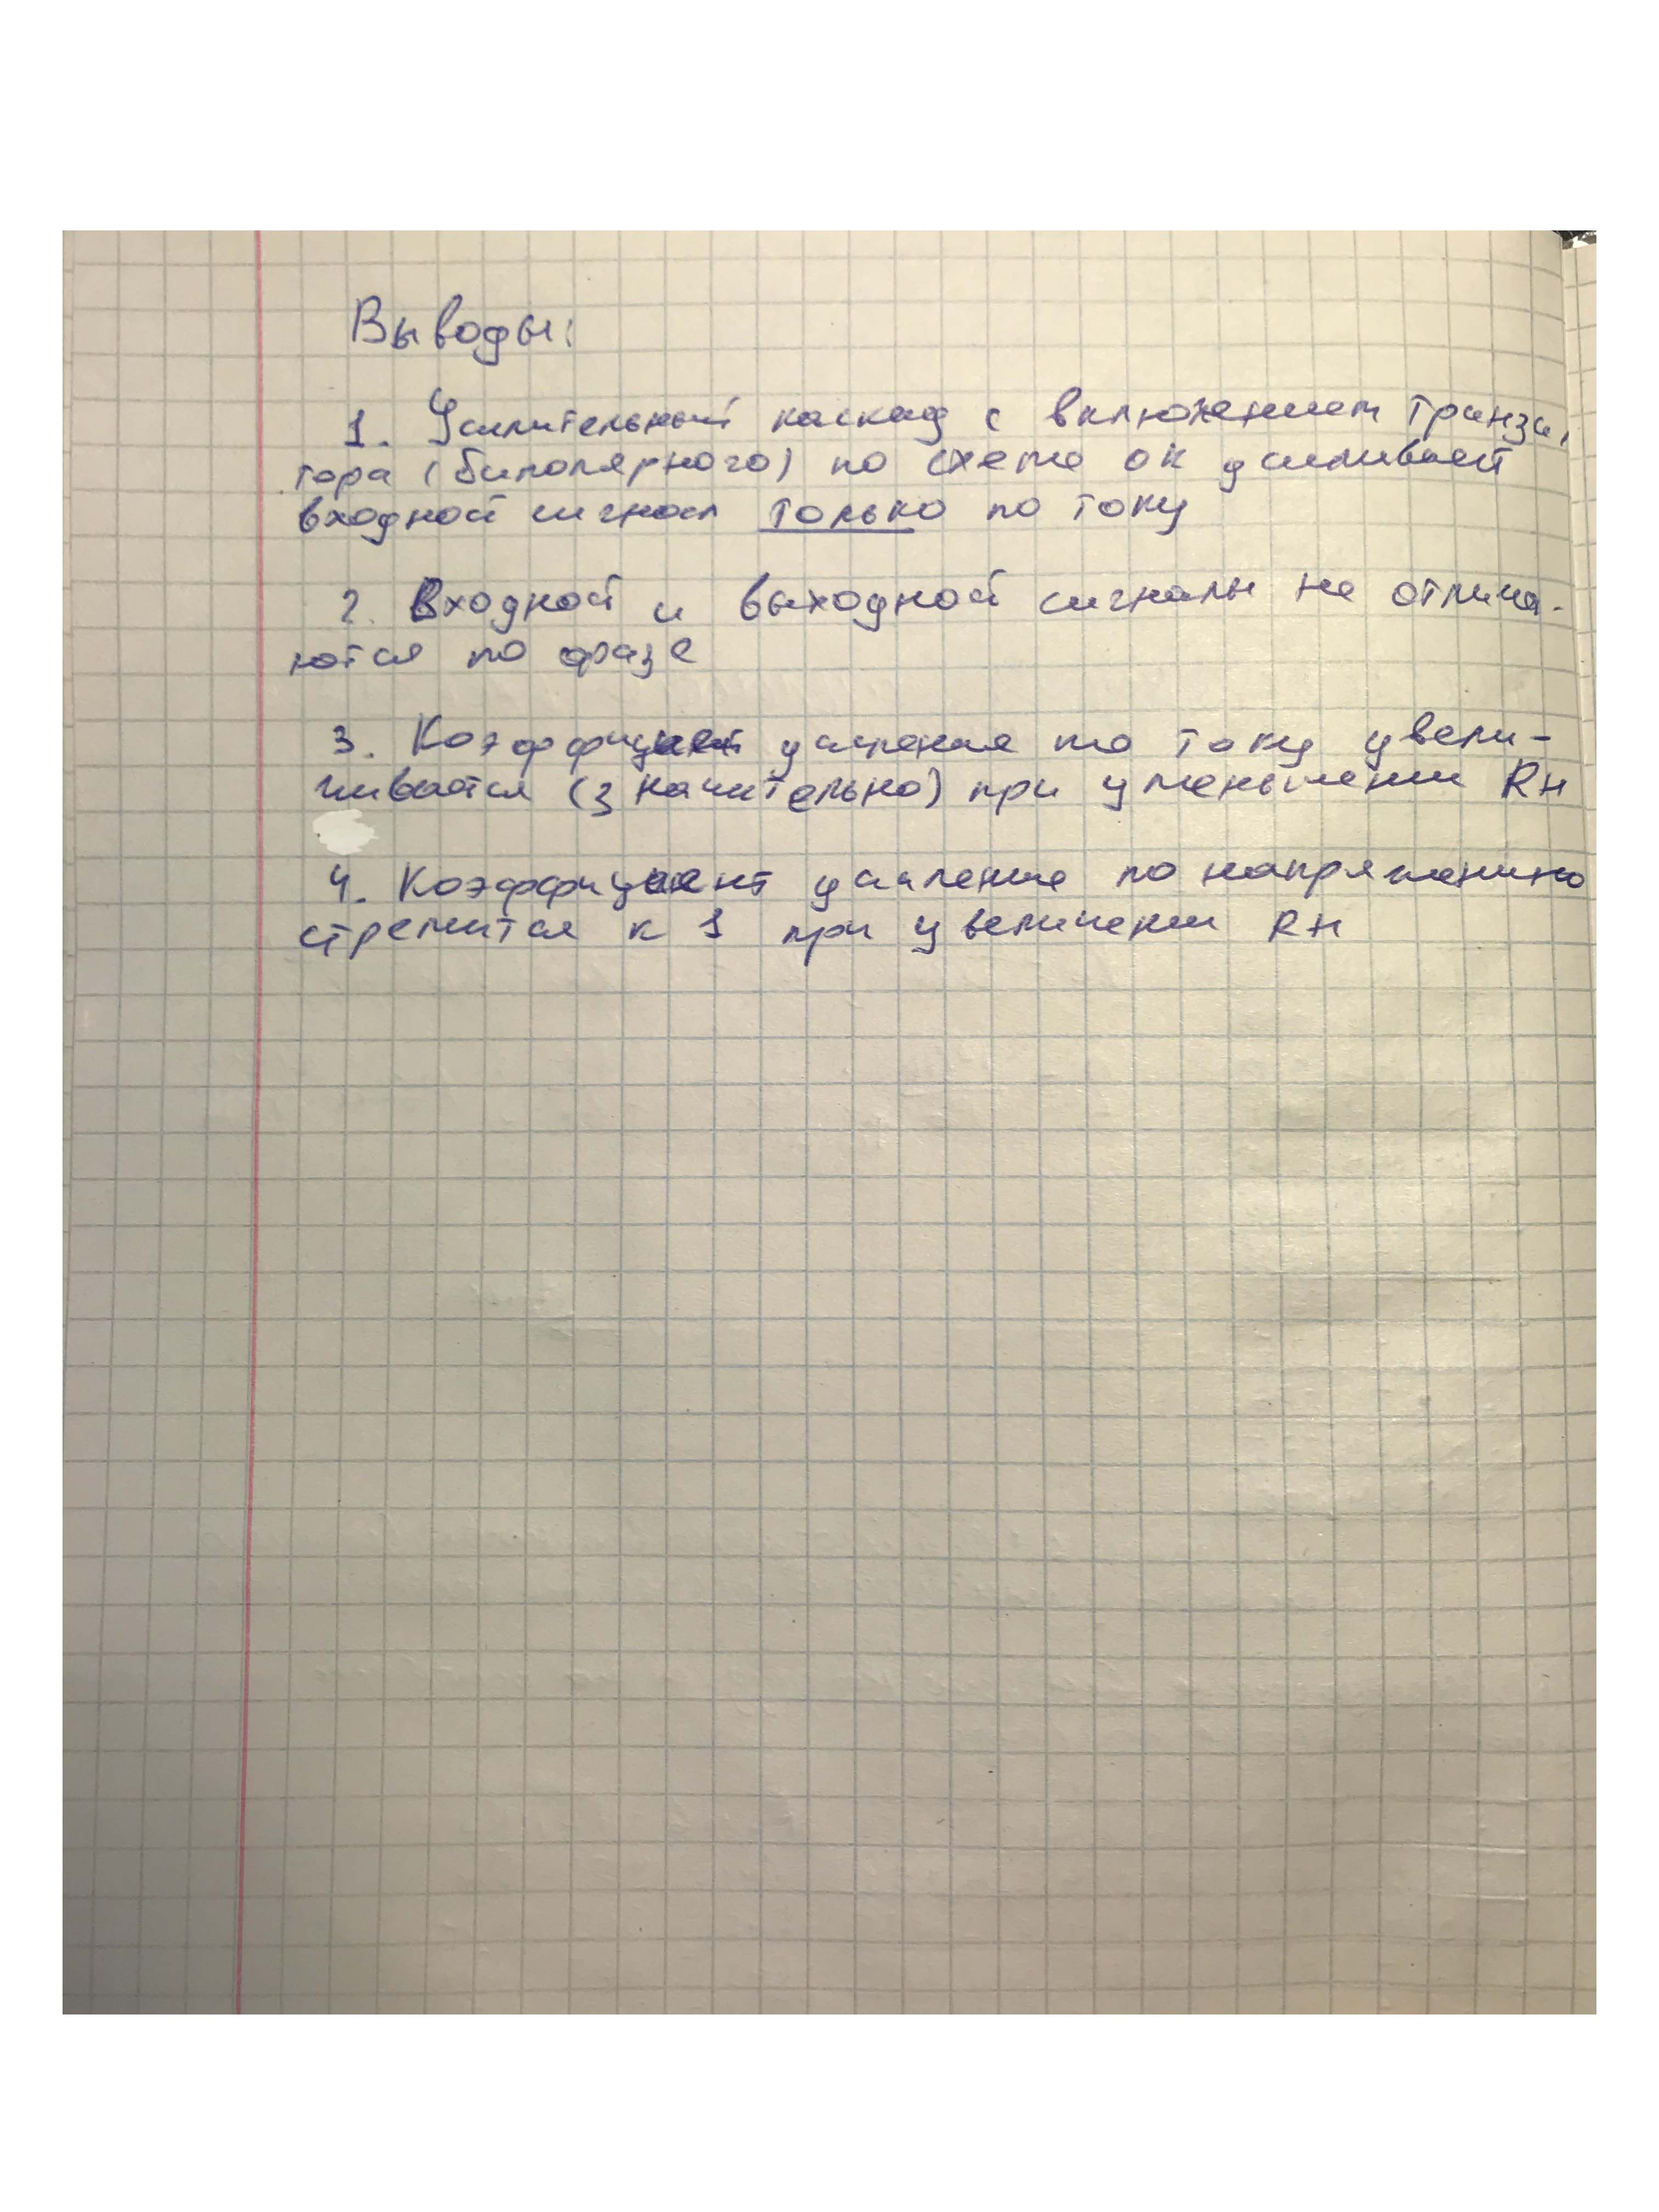 Выводы:
1. Усилительный каскад с включением транзис
тора (биполярного) по схеме ОК усиливает
входной сигнал только по току
2. Входной и выходной сигналы не отлича-
ются по фазе
3. Коэффициент усиления по току увели-
чивается (значительно) при уменьшении Rн
4. Коэффициент усиление по напряжению
стремится к 1 при увеличении Rн